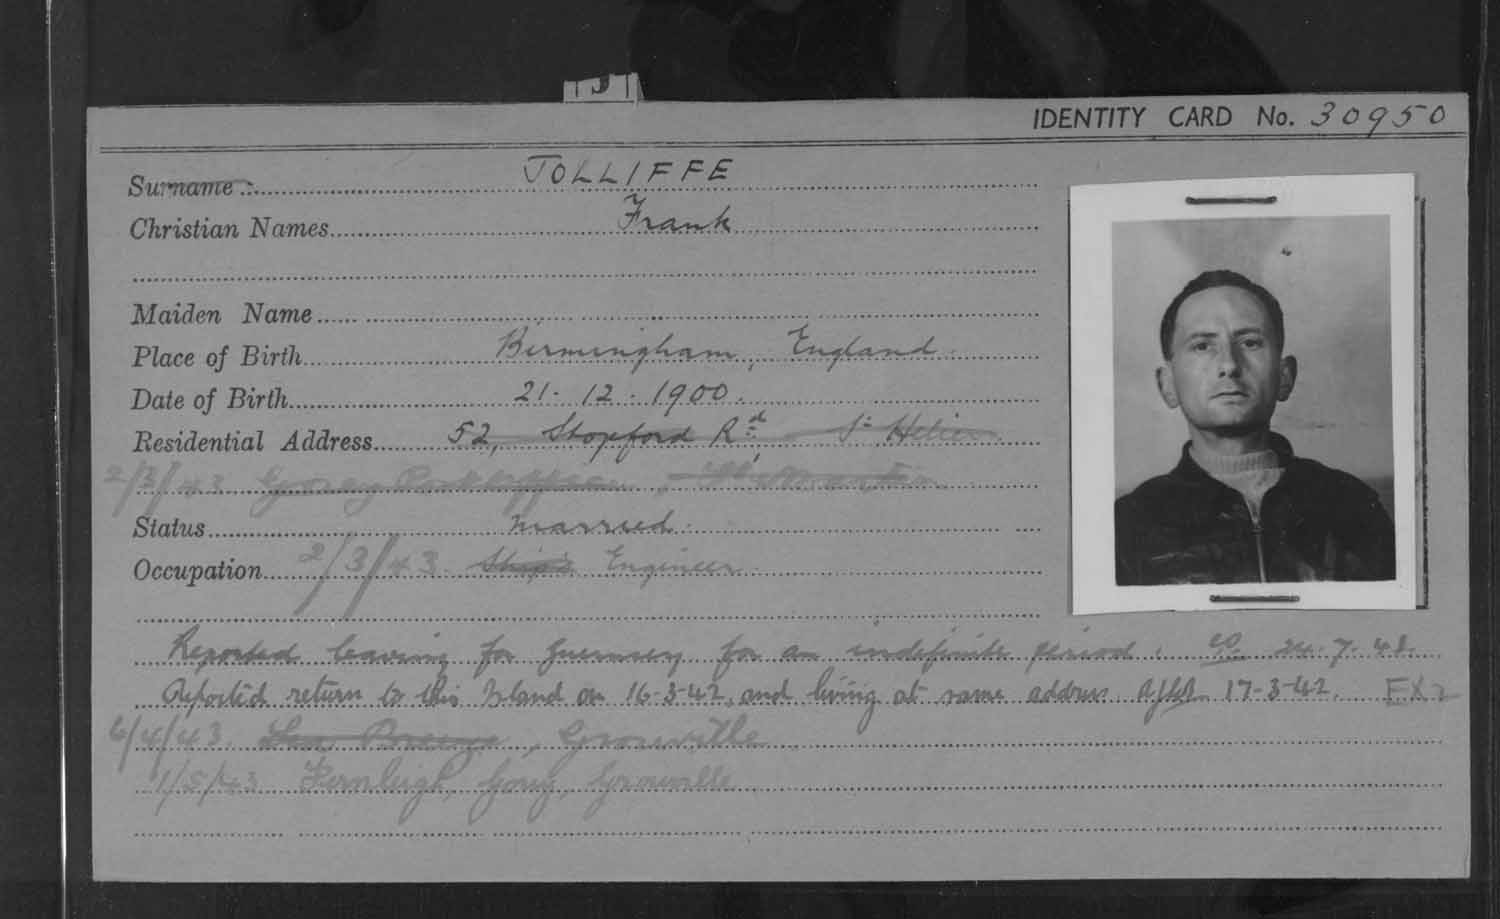 J
IDENTITY CARD No. 30950
Surname JOLLIFFE
Christian Names Frank
Maiden Name
Place of Birth Birmingham, England.
Date of Birth 21.12.1900.
Residential Address 52, Stopford Rd, St Helier
2/3/43 Gorey
Status married.
Occupation 2/3/43 Ship's Engineer
Reported leaving for Guernsey for an indefinite period. 24.7.41.
Reported return to this Island on 16-3-42, and living at same address after 17-3-42. EX2
6/4/43. Sea Breeze, Grouville
1/5/43 Fernleigh, Gorey, Grouville